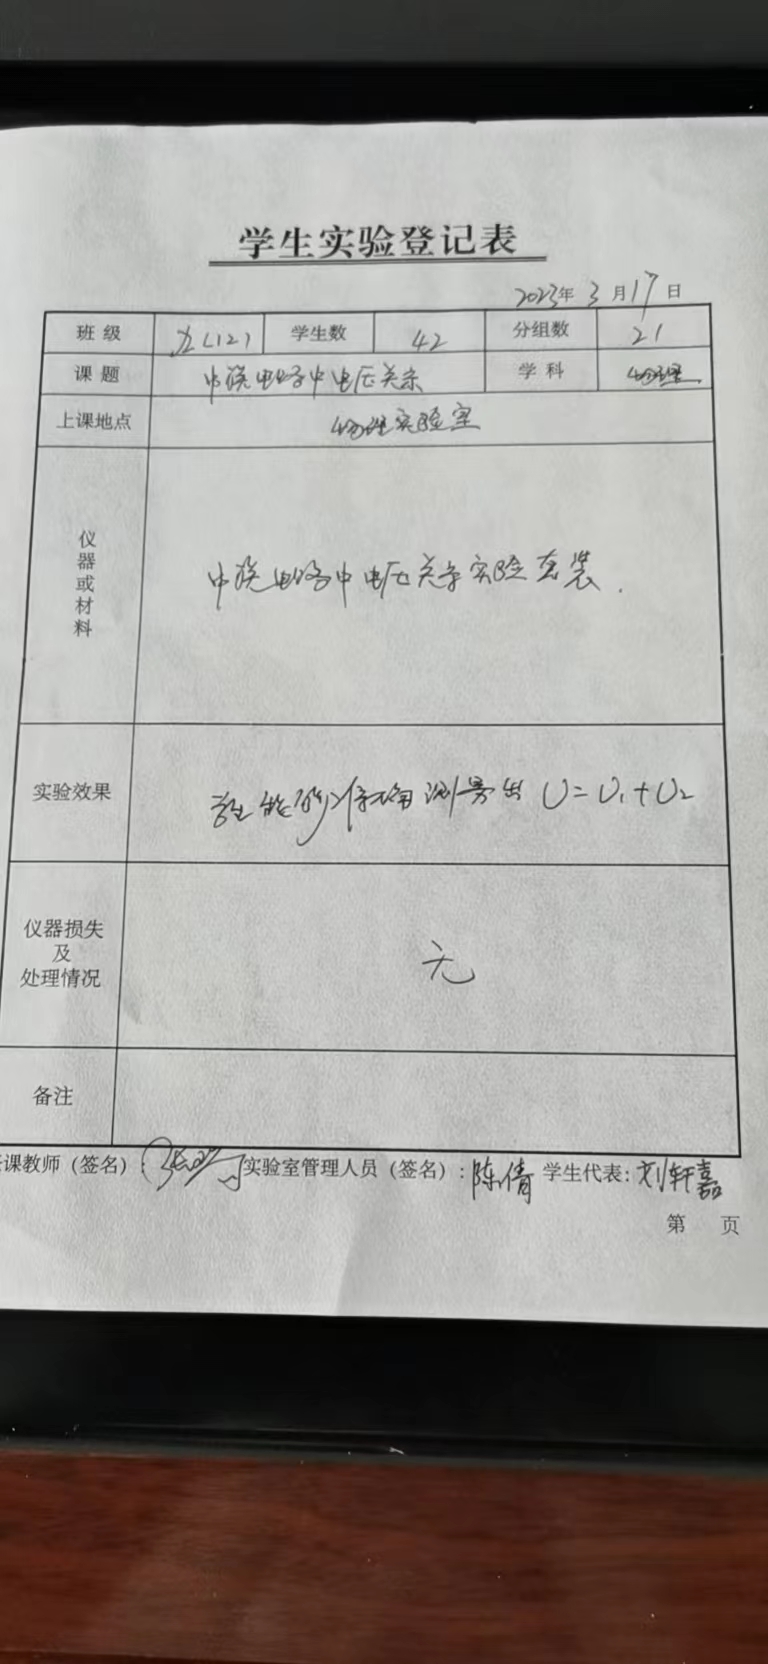 学生实验登记表
2023年 3 月 17 日
班级 九(12) 学生数 42 分组数 21
课题 串联电路中电压关系 学科 物理
上课地点 物理实验室
仪器或材料 串联电路中电压关系实验套装.
实验效果 学生能够准确测量出 U=U₁+U₂
仪器损失
及
处理情况 无
备注
课教师（签名）: 实验室管理人员（签名）: 陈倩 学生代表: 刘轩嘉
第 页